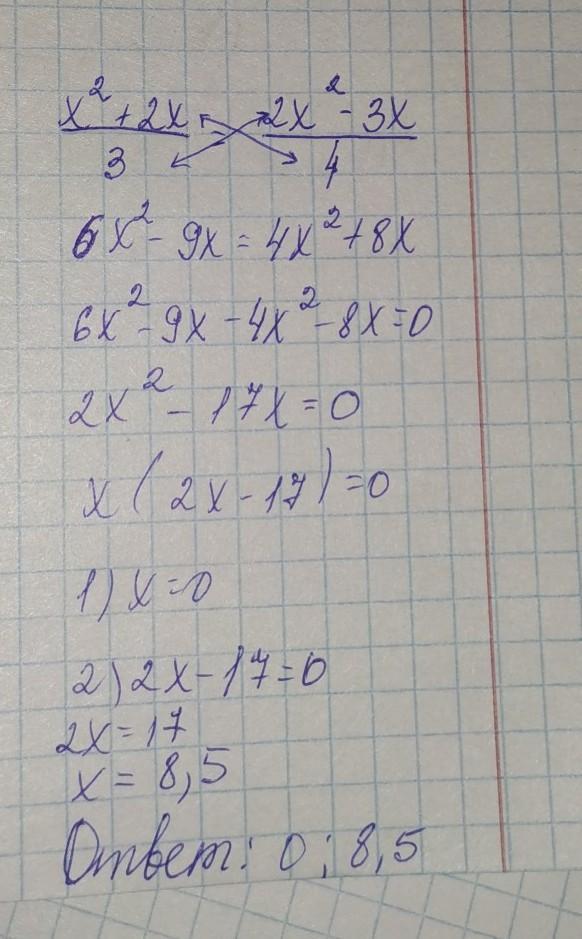 x²+2x / 3 = 2x²-3x / 4
6x²-9x=4x²+8x
6x²-9x-4x²-8x=0
2x²-17x=0
x(2x-17)=0
1) x=0
2) 2x-17=0
2x=17
x=8,5
Ответ: 0; 8,5